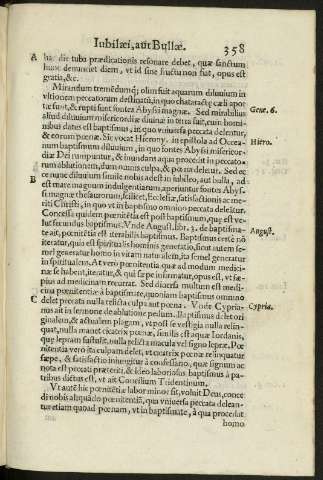 Iubilæi, aut Bullæ. 358
A hac die tubo prædicationis resonare debet, quæ sanctum
hunc denunciet diem, vt id sine fructu non fiat, opus est
gratia, &c.
Mirandum tremẽdumq; olim fuit aquarum diluuium in
vltionem peccatorum destinatũ, in quo cataractæ cæli apertæ
sunt, & rupti sunt fontes Abyssi magnæ. Sed mirabilius
aliud diluuium misericordiæ diuinæ in terra fuit, cum hominibus
dates est baptismus, in quo vniuersa peccata delentur,
& eorum pœnæ. Sic vocat Hierony. in epistola ad Oceanum
baptismum diluuium, in quo fontes Abyssi misericordiæ
Dei rumpuntur, & inundant aqua procerint in peccatorum
ablutionem, dum omnis culpa, & pœna deletur. Sed ecce
nunc diluuium simile nobis adest in iubileo, aut bulla, ad
B est mare magnum indulgentiarum, aperiuntur fontes Abyssi
magnæ thesaurorum, scilicet, Ecclesiæ, satisfactionis ac meriti
Christi, in quo vt in baptismo omnino peccata delẽtur.
Concessa quidem pœnitẽtia est post baptismum, quæ est velut
secundus baptismus. Vnde August. libr. 3. de baptismate
ait, pœnitẽtia est iterabilis baptismus. Baptismus certè nõ
iteratur, quia est spiritualis hominis generatio, sicut autem semel
generatur homo in vitam naturalem, ita semel generatur
in spiritualem. At verò pœnitentia quæ ad modum medicinæ
se habent, iteratur, & qui sæpe infirmatur, opus est, vt sæpius
ad medicinam recurrat. Sed diuersa multum est medicina
pœnitentiæ à baptismate, quoniam baptismus omnino
C delet peccata nulla relicta culpa aut pœna. Vnde Cyprianus
ait in sermone de ablutione pedum. Baptismus delet originalem,
& actualem plagam, vt post se vestigia nulla relinquat,
nulla manet cicatrix pœnæ, similis est aquæ Iordanis,
quæ lepram sustulit, nulla relicta macula vel signo lepræ. Pœnitentia
verò ita culpam delet, vt cicatrix pœnæ relinquatur
sæpe, & satisfactio iniungitur à confessario, quæ signum ac
nota est peccati præteriti, & ideo laboriosus baptismus à patribus
dictus est, vt ait Concilium Tridentinum.
Vt autẽ hic pœnitẽtiæ labor minor sit, voluit Deus, concedi
nobis aliquãdo pœnitentiã, qua vniuersa peccata deleantur
etiam quoad pœnam, vt in baptismate, à qua procedat
homo
Gene. 6.
Hiero.
August.
Cypria.